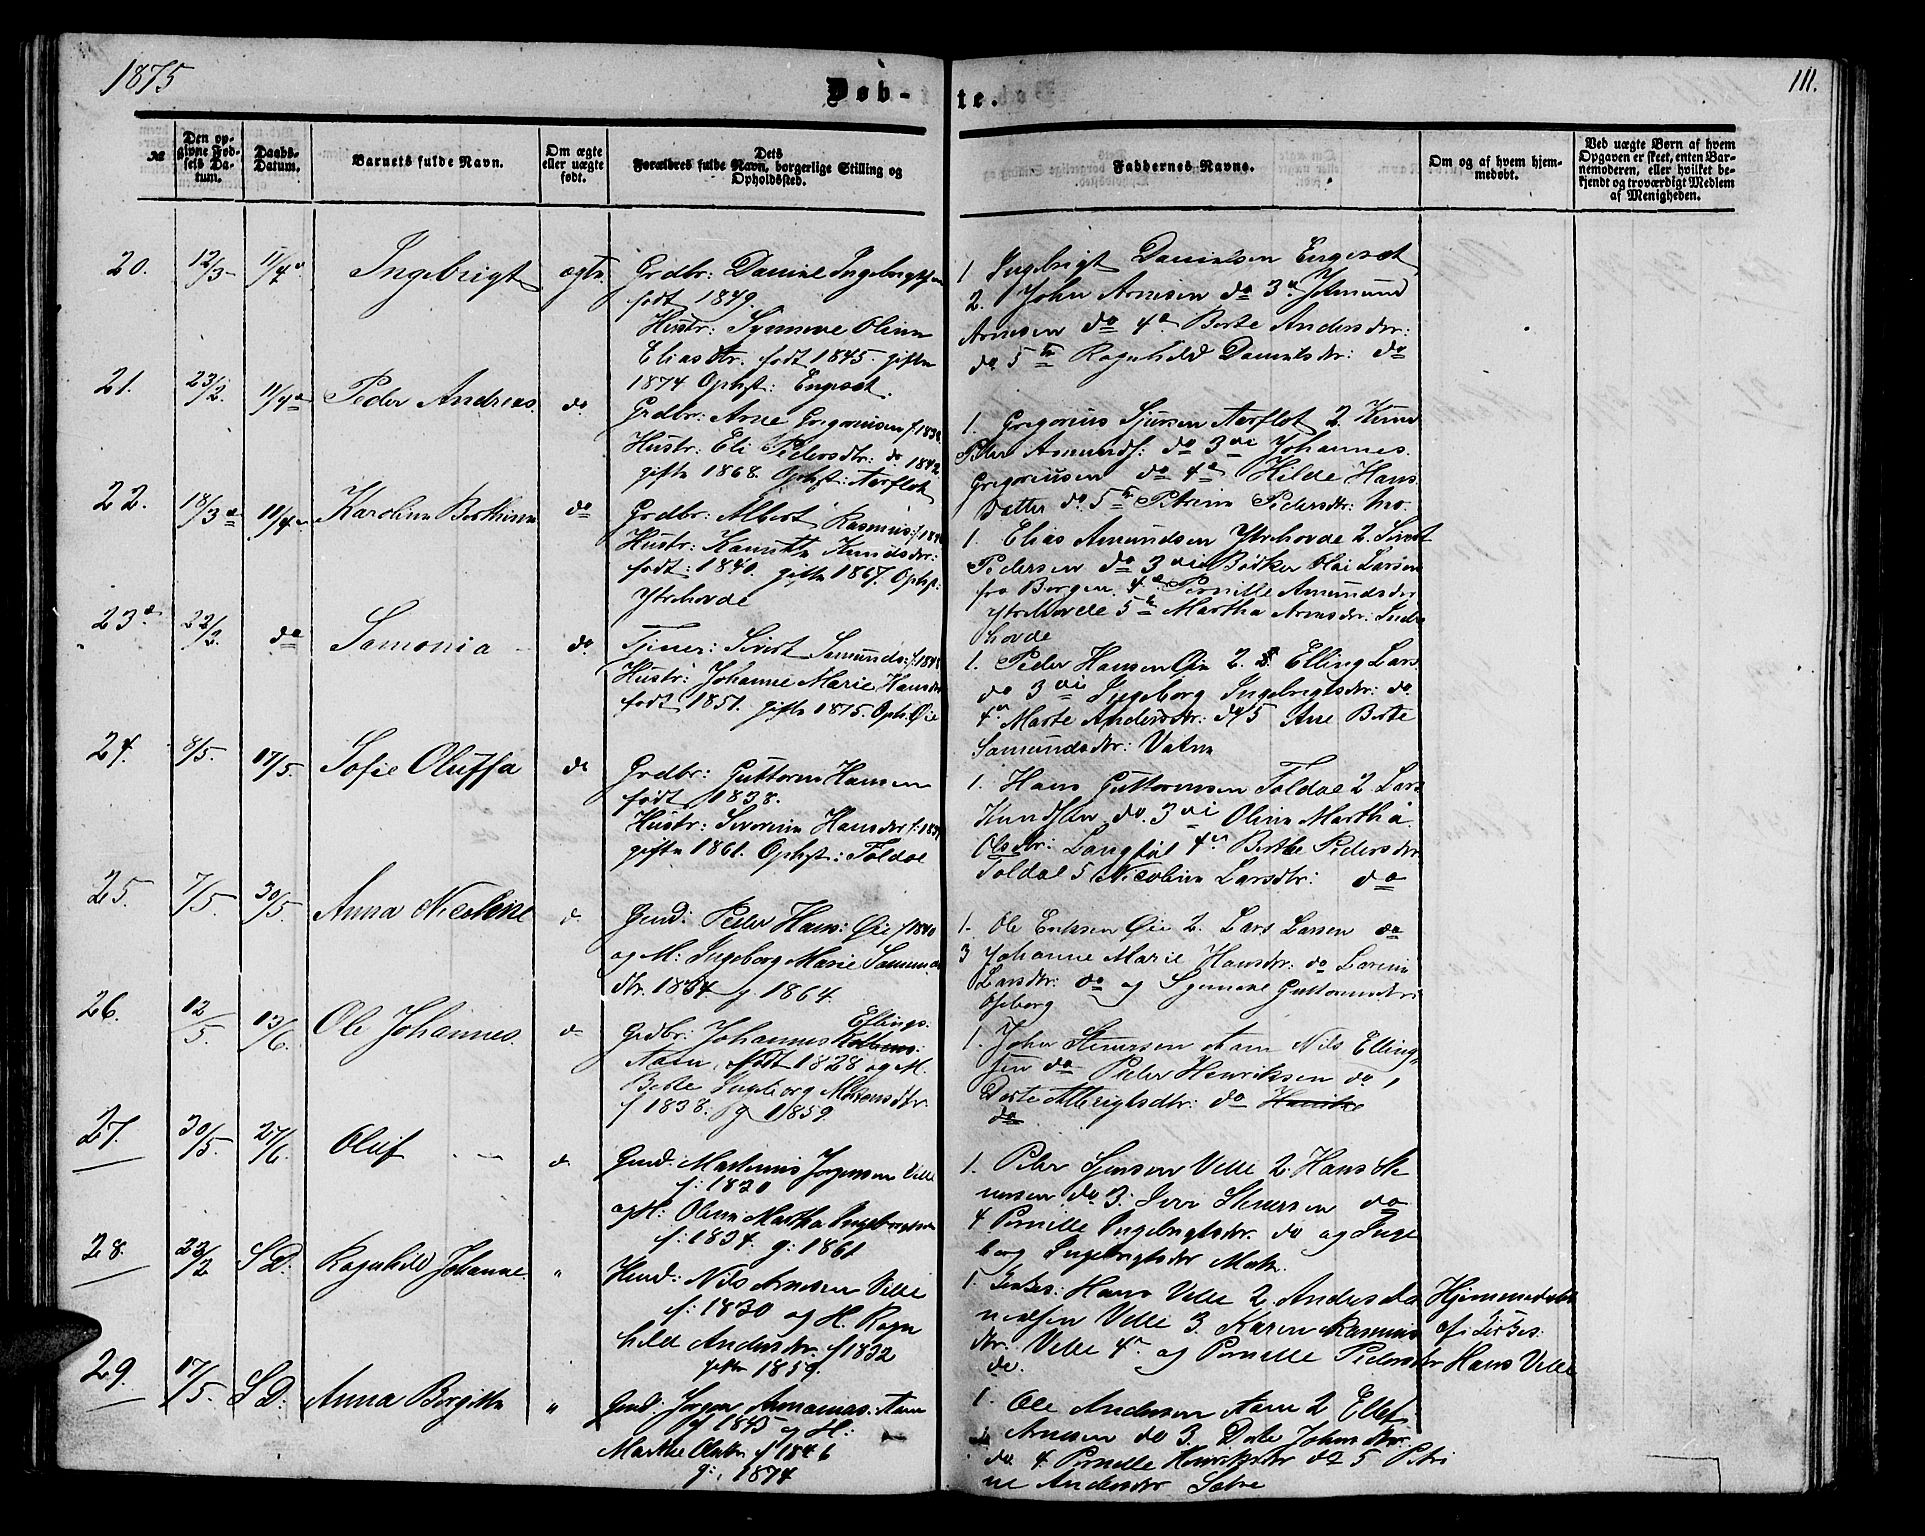 1875
Døb-
te.
111.
№
Den op-
givne Fød-
sels Da-
tum.
Daabs-
Datum.
Barnets fulde Navn.
Om ægte
eller uægte
født.
Dets
Forældres fulde Navn, borgerlige Stilling og
Opholdssted.
Faddernes Navne.
Om og af hvem hjem-
medøbt.
Ved uægte Børn af hvem
Opgaven er skeet, enten Bar-
nemoderen, eller hvilket be-
kjendt og troværdigt Medlem
af Menigheden.
20.
12/3
11/4
Ingebrigt
ægte
Grdbr: Daniel Ingebrigtsen
født 1849.
Hustr: Synneve Oline
Eliasdtr. født 1845. gifte
1874 Ophst: Engeset.
1. Ingebrigt Danielsen Engeset
2. John Arnesen do 3 Amund
Arnesen do 4 Berte Andersdtr:
do 5 Ragnhild Danielsdtr: do
21.
23/2.
11/4
Peder Andreas.
do
Grdbr: Arne Gregoriusen f:
Hustr: Eli Pedersdtr: do 1842
gifte 1868. Ophst: Aarflot
1. Gregorius Sjursen Aarflot 2. Knud
Peder Amunds: do 3 Johannes
Gregoriusen do 4 Hilde Hans
datter do. 5 Petrine Pedersdtr:
22.
18/3
11/4
Karoline Berthine
do
Grdbr: Albert Rasmus:
Hustr: Knudsdtr:
født: 1840. gifte 1867. Ophst:
Ytrehovde
1. Elias Amundsen Ytrehovde 2. Sivert
Pedersen do 3 Bødker Larsen
fra Bergen. 4 Pernille Amundsdtr
Ytrehovde 5 Martha Arnesdtr. Indre
hovde
23
22/3.
do
Samonia
do.
Tjener: Sivert Samunds: f:
Hustr: Johanne Marie Hansdtr
født 1851. gifte 1875. Oph: Øie
1. Peder Hansen Øie 2. Elling Lars.
do 3 Ingeborg Ingebrigtsdtr: do.
4. Marte Andersdtr: do 5 Ane Berte
Samundsdtr: Vatne
24.
8/5.
17/5.
Sofie Oluffa
do
Grdbr: Guttorm Hansen
født 1838.
Hustr: Severine Hansdtr f:
gifte 1861. Ophst: Foldal
1. Hans Guttormsen Foldal 2 Lars
Knudsen do. 3 Oline Martha
Olsdtr: 4 Berthe Pedersdtr.
Foldal 5 Nicoline Larsdtr: do
25.
7/5.
30/5.
Anna Nicoline
d.
Gmd: Peder Hans: Øie f 1840
og M: Ingeborg Marie Samunds
dtr. 1834 g 1864.
1. Ole Eriksen Øie 2. Lars Larsen do
3 Johanne Marie Hansdtr: do
Larsdtr: do og Synneve Guttormsdtr
26.
12/5
13/6.
Ole Johannes.
d
Ellings.
Grdbr: Johannes
Aam, født 1828 og M.
Berte Ingeborg
f 1838. g 1859
1. John Stenersen Aam Nils Elling
sen do Peder Henriksen do
Dorte Albrigtsdtr: do
do
27.
30/5.
27/6.
Oluf
d.
Gmd. Martinus Jørgensen Velle
f: 1830
og H: Oline Martha
f: 1834. g: 1861
1. Peder Velle 2. Hans Ste
nersen do 3. Iver Stenersen do
4 Pernille Ingebrigtsdtr. do og Inge
borg Ingebrigtsdtr
28.
22/2
S D.
Ragnhild Johanne.
"
Hmd: Nils Arnesen Velle
f: 1830 og H. Ragn
hild Andersdtr. f 1832
gifte 1859.
1. Hans Velle 2 Anders Da
nielsen Velle 3. Karen Rasmus
dtr. Velle 4. og Pernille Pedersdtr
do.
Hjemmedøbt
af
Hans Velle
29.
17/5.
S D.
Anna Bergitte
"
Gmd: Jørgen Aam
f 1845 og H:
Marthe Olsdtr f 1846
g: 1874
1. Ole Andersen Aam 2 Ellef
Arnesen do 3. Dorte Johnsdtr.
do 4 Pernille Henriksdtr do 5 Petri
ne Andersdtr Sætre